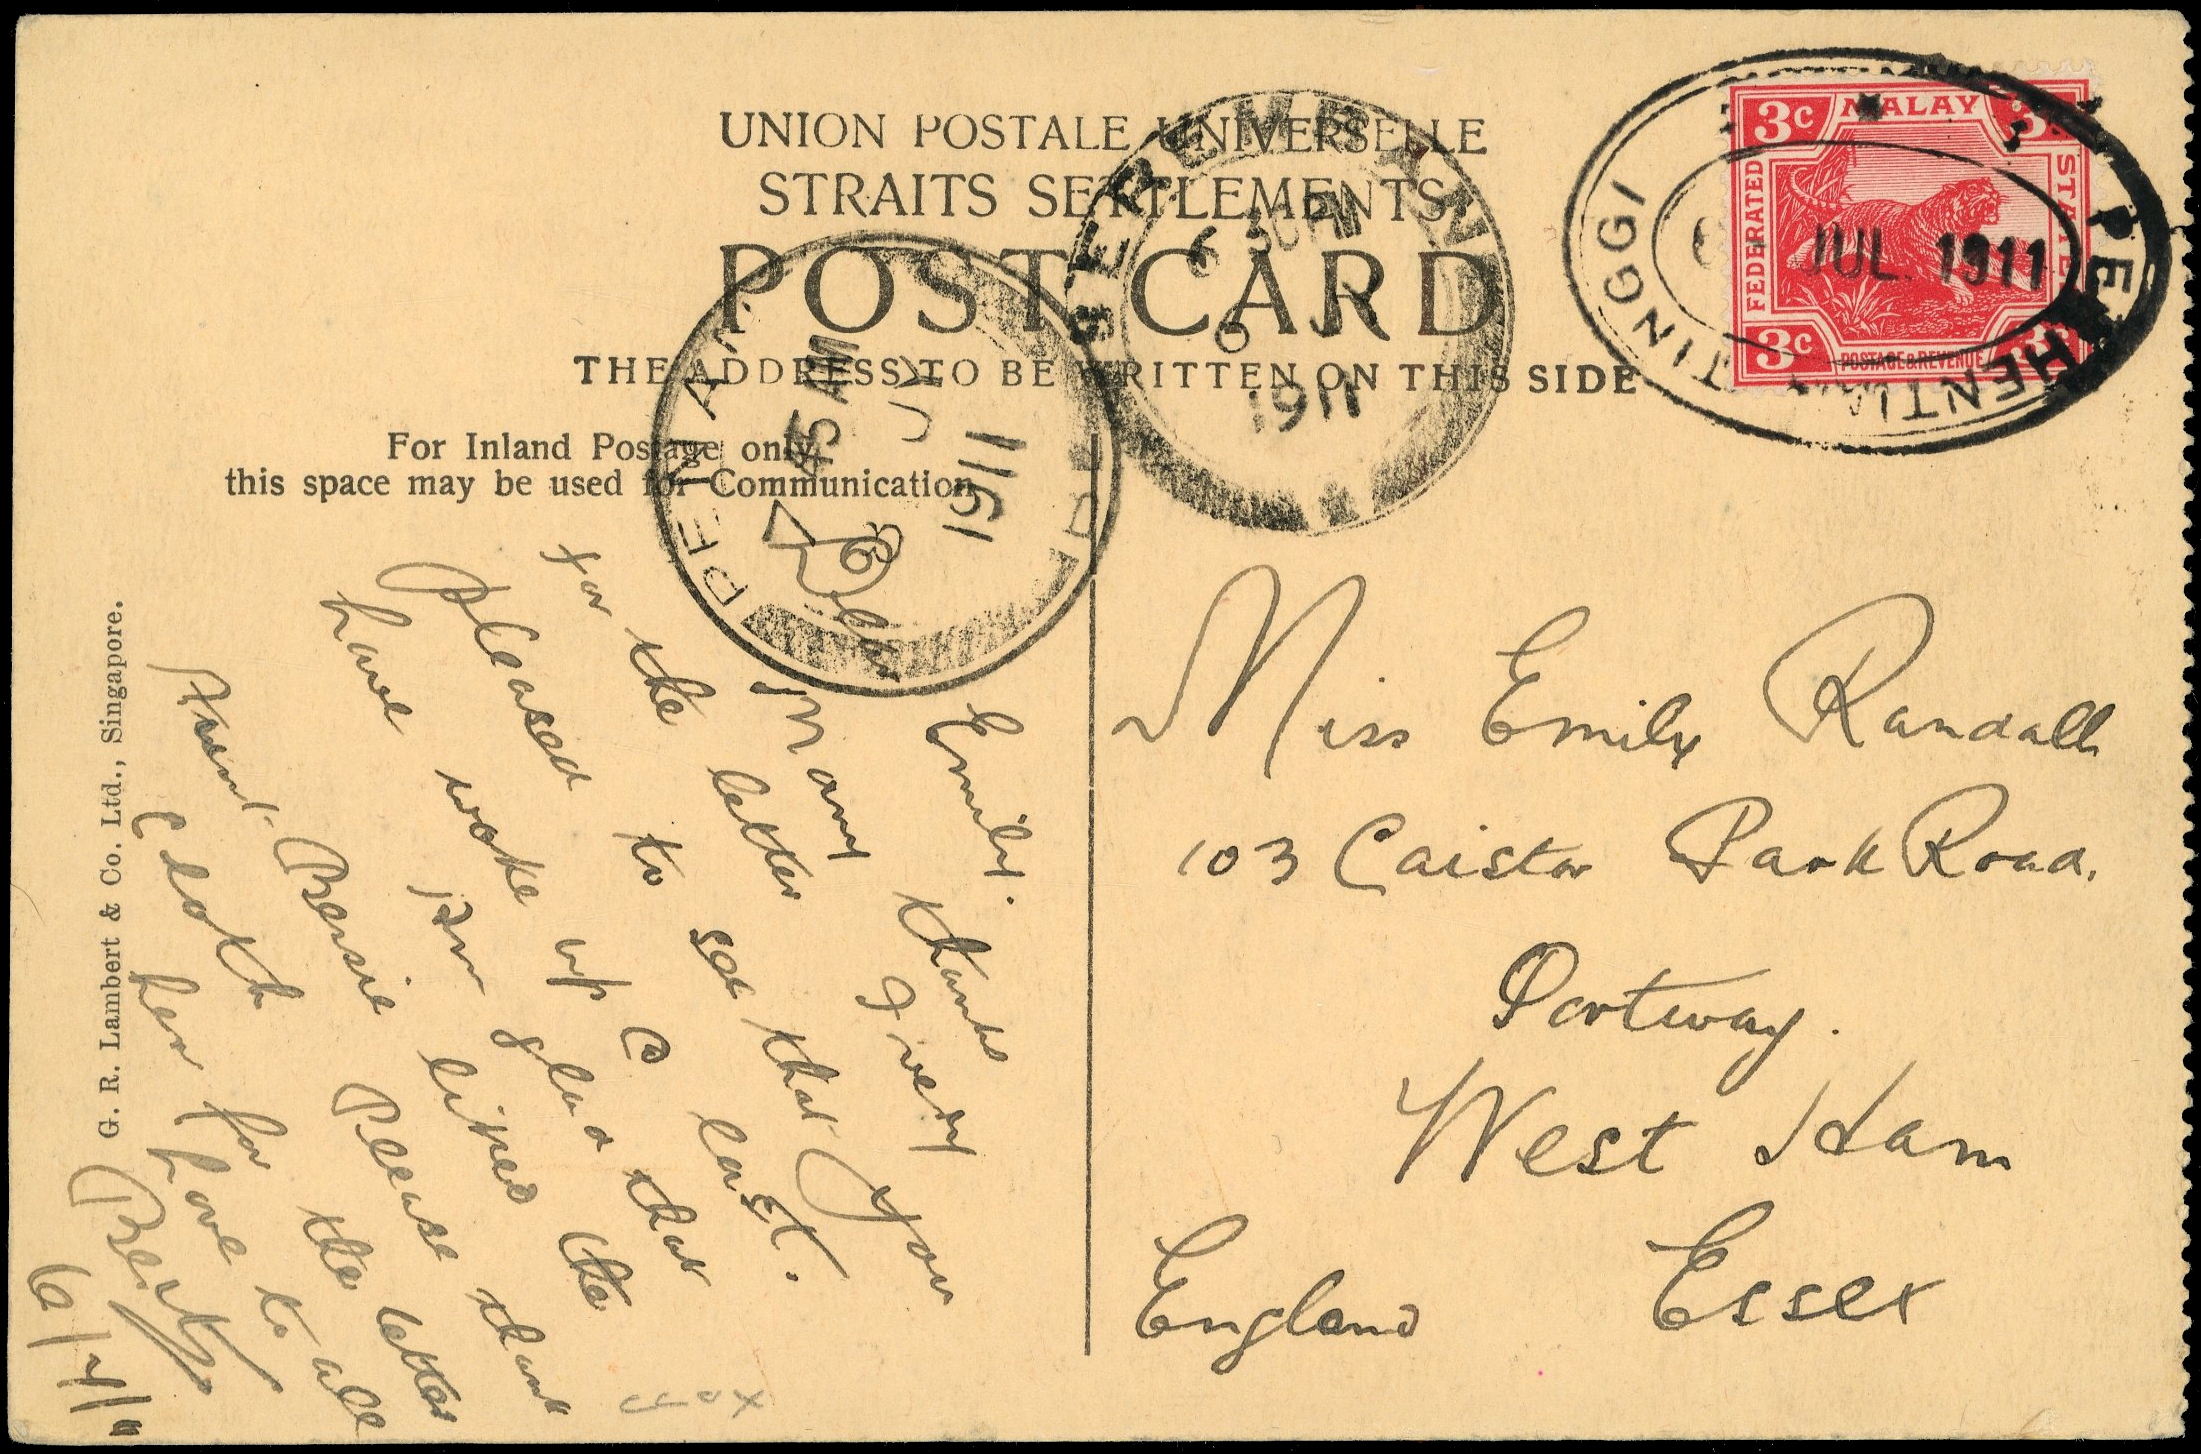 UNION POSTALE UNIVERSELLE
STRAITS SETTLEMENTS.
POST CARD
THE ADDRESS TO BE WRITTEN ON THIS SIDE
For Inland Postage only,
this space may be used for Communication
G. R. Lambert & Co. Ltd., Singapore.
3C MALAY 3C
FEDERATED STATES
3C POSTAGE & REVENUE 3C
TINGGI
JUL. 1911
SEREMBAN
6 30 AM
6 JY
1911
45 AM
1911
Dear
Emily.
Many thanks
for the letter I very
pleased to see that you
have woke up @ last.
glad that
Aunt Bessie liked the
Please thank
Edith for the letter
love to all
Bert
6/7/11
Miss Emily Randall
103 Caistor Park Road.
Portway.
West Ham
Essex
England